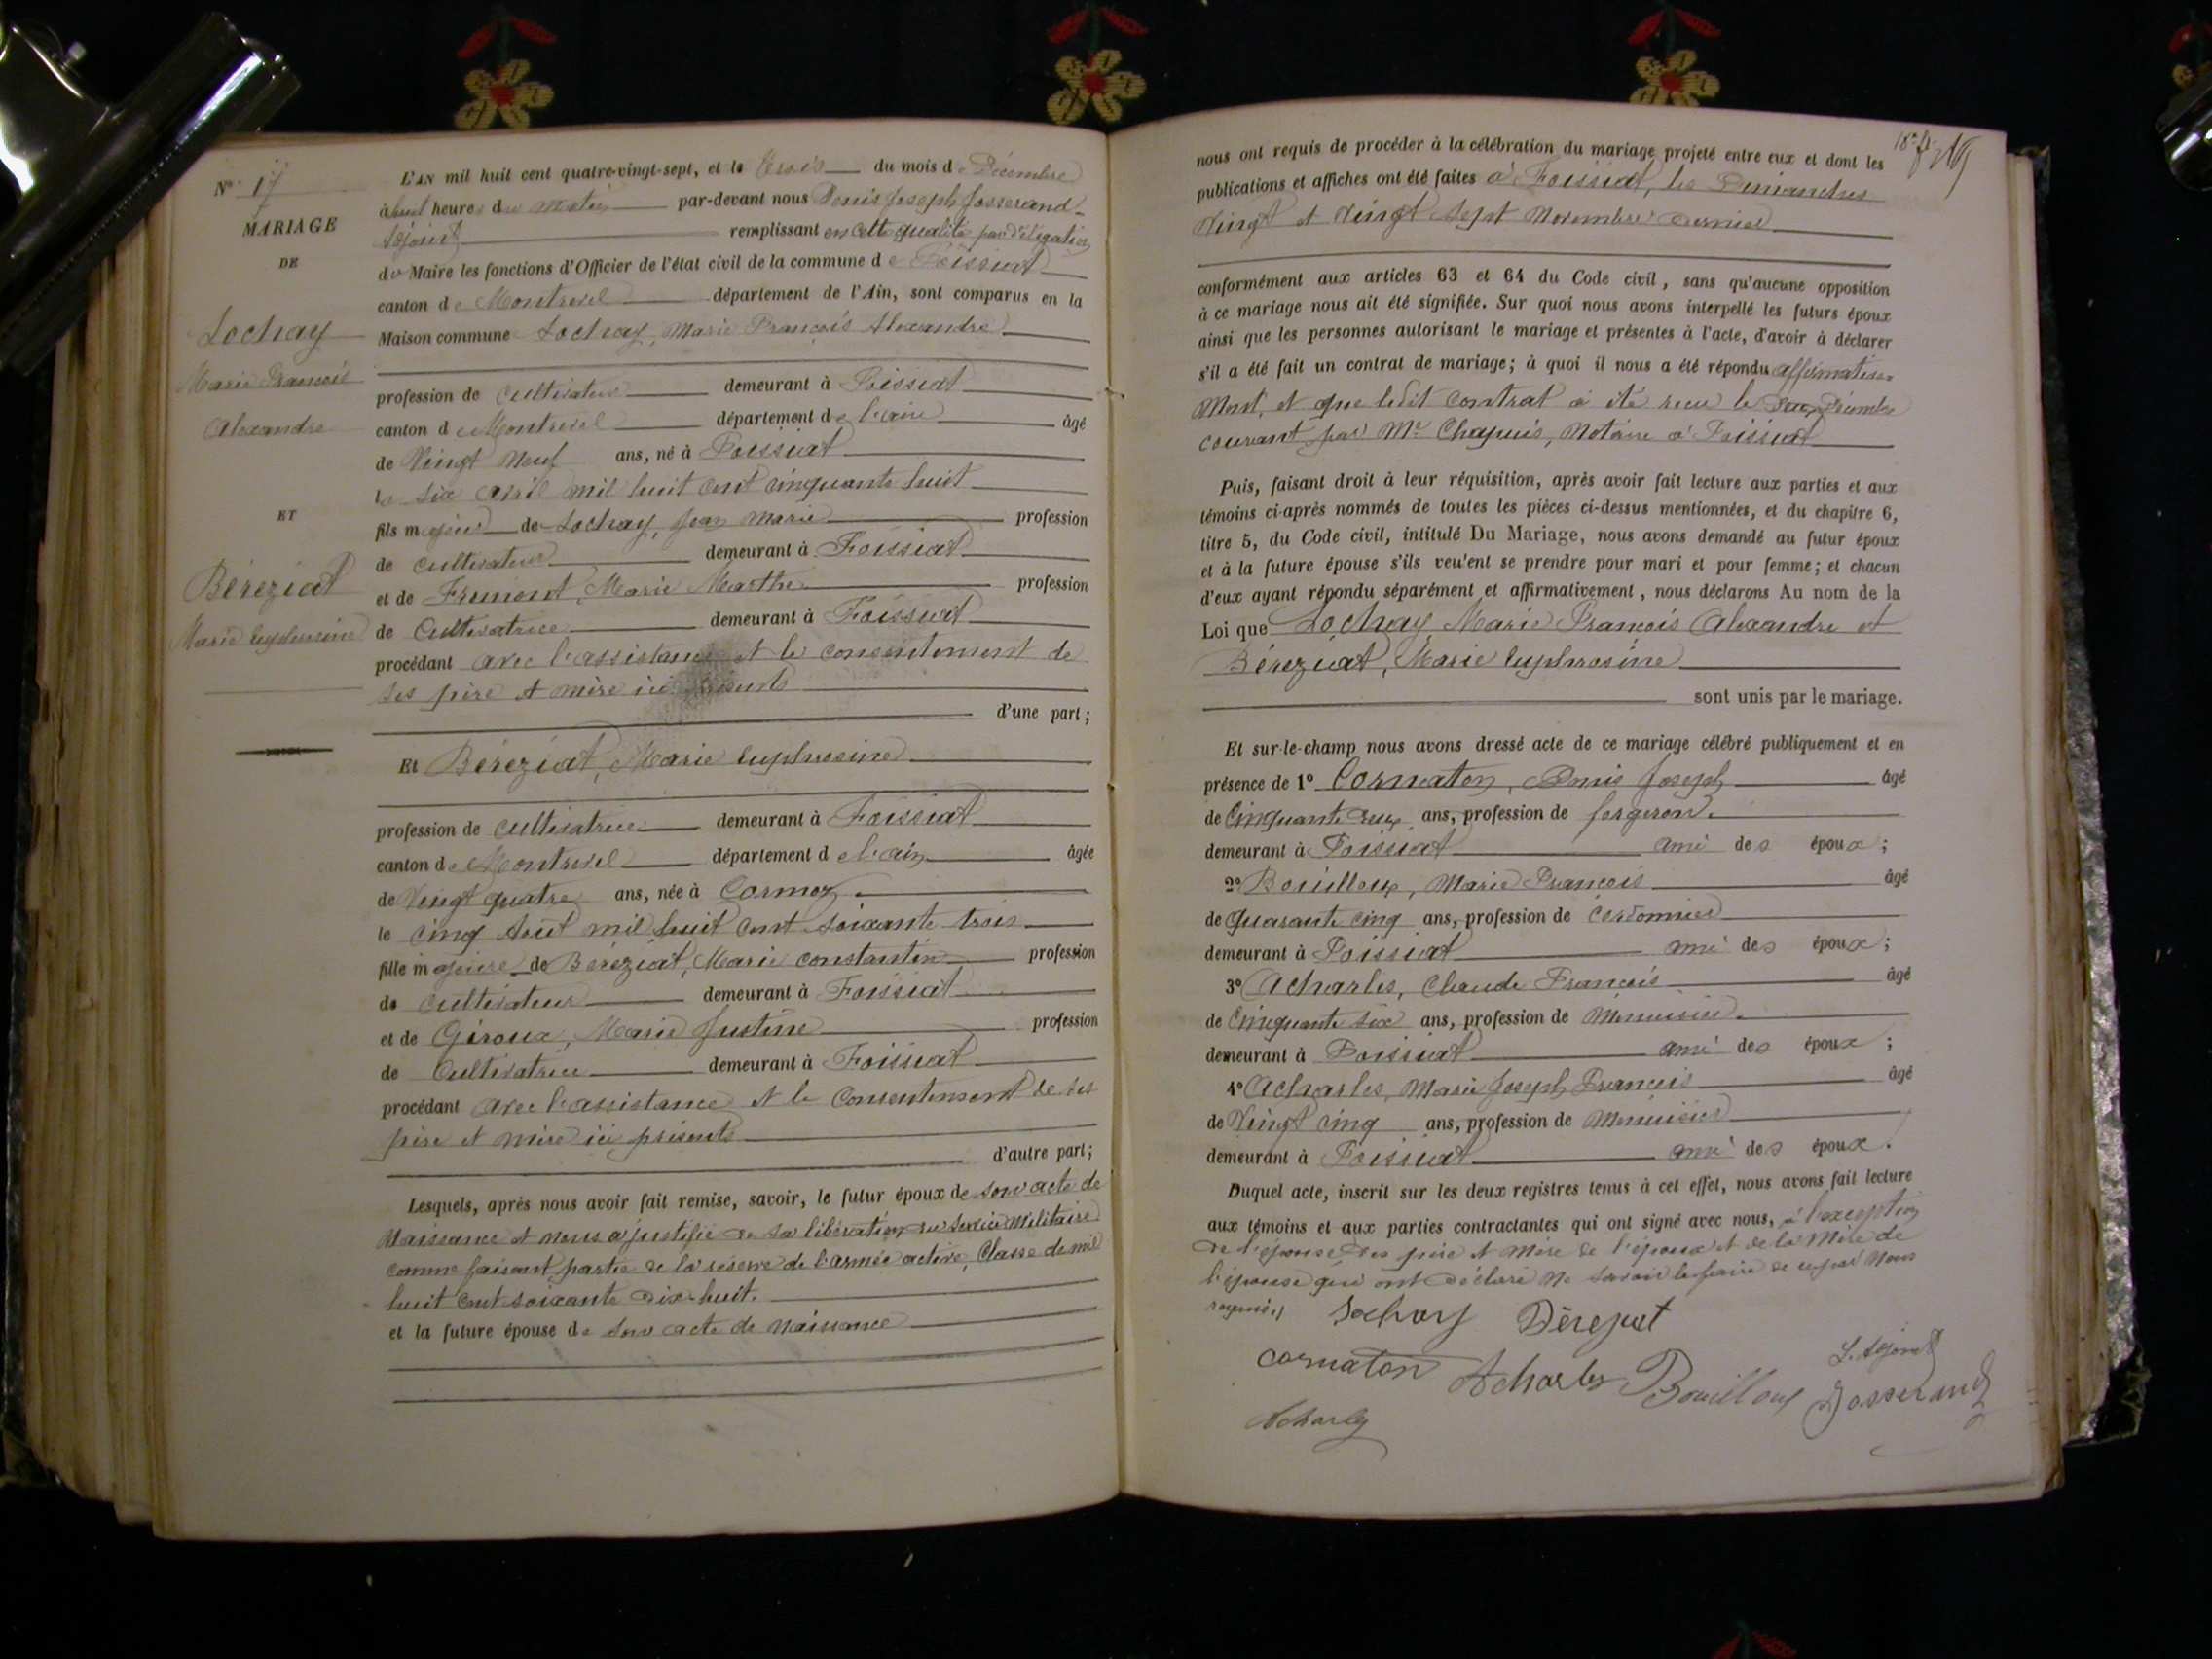 N° 17
MARIAGE
DE
Lochay
Marie François
Alexandre
ET
Béréziat
Marie Euphrosine
L'AN mil huit cent quatre-vingt-sept, et le trois du mois de Décembre
à huit heures du matin par-devant nous Denis Joseph Josserand
Adjoint remplissant en cette qualité par délégation
du Maire les fonctions d'Officier de l'état civil de la commune de Foissiat
canton de Montrevel département de l'Ain, sont comparus en la
Maison commune Lochay, Marie François Alexandre
profession de cultivateur demeurant à Foissiat
canton de Montrevel département de l'ain âgé
de Vingt neuf ans, né à Foissiat
le six avril mil huit cent cinquante huit
fils majeur de Lochay, Jean Marie profession
de cultivateur demeurant à Foissiat
et de Fremont, Marie Marthe profession
de Cultivatrice demeurant à Foissiat
procédant avec l'assistance et le consentement de
ses père et mère ici présents
d'une part;
Et Béréziat, Marie Euphrosine
profession de cultivatrice demeurant à Foissiat
canton de Montrevel département de l'ain âgée
de Vingt quatre ans, née à Cormoz
le cinq Août mil huit cent soixante trois
fille majeure de Béréziat, Marie constantin profession
de cultivateur demeurant à Foissiat
et de Giroux, Marie Justine profession
de Cultivatrice demeurant à Foissiat
procédant avec l'assistance et le Consentement de ses
père et mère ici présents
d'autre part;
Lesquels, après nous avoir fait remise, savoir, le futur époux de son acte de
Naissance et nous a justifié de sa libération du service Militaire
comme faisant partie de la réserve de l'armée active, Classe de mil
huit cent soixante dix-huit.
et la future épouse de son acte de naissance
nous ont requis de procéder à la célébration du mariage projeté entre eux et dont les
publications et affiches ont été faites à Foissiat, les Dimanches
Vingt et Vingt sept Novembre dernier
conformément aux articles 63 et 64 du Code civil, sans qu'aucune opposition
à ce mariage nous ait été signifiée. Sur quoi nous avons interpellé les futurs époux
ainsi que les personnes autorisant le mariage et présentes à l'acte, d'avoir à déclarer
s'il a été fait un contrat de mariage; à quoi il nous a été répondu affirmative-
ment, et que ledit contrat a été reçu le deux Décembre
courant par Me Chapuis, Notaire à Foissiat
Puis, faisant droit à leur réquisition, après avoir fait lecture aux parties et aux
témoins ci-après nommés de toutes les pièces ci-dessus mentionnées, et du chapitre 6,
titre 5, du Code civil, intitulé Du Mariage, nous avons demandé au futur époux
et à la future épouse s'ils veu'ent se prendre pour mari et pour femme; et chacun
d'eux ayant répondu séparément et affirmativement, nous déclarons Au nom de la
Loi que Lochay, Marie François Alexandre et
Béréziat, Marie Euphrosine
sont unis par le mariage.
Et sur-le-champ nous avons dressé acte de ce mariage célébré publiquement et en
présence de 1° Cornaton, Denis Joseph âgé
de Cinquante deux ans, profession de forgeron.
demeurant à Foissiat ami des époux;
2° Bouilloux, Marie François âgé
de quarante cinq ans, profession de Cordonnier
demeurant à Foissiat ami des époux;
3° Acharles, Claude François âgé
de Cinquante six ans, profession de Menuisier.
demeurant à Foissiat ami des époux;
4° Acharles, Marie Joseph François âgé
de Vingt cinq ans, profession de Menuisier
demeurant à Foissiat ami des époux.
Duquel acte, inscrit sur les deux registres tenus à cet effet, nous avons fait lecture
aux témoins et aux parties contractantes qui ont signé avec nous, à l'exception
de l'épouse des père et mère de l'époux et de la Mère de
l'épouse qui ont déclaré ne savoir le faire de ce par Nous
requis
Lochay Béréziat
Cornaton Acharles Bouilloux L'Adjoint
Josserand
Acharles